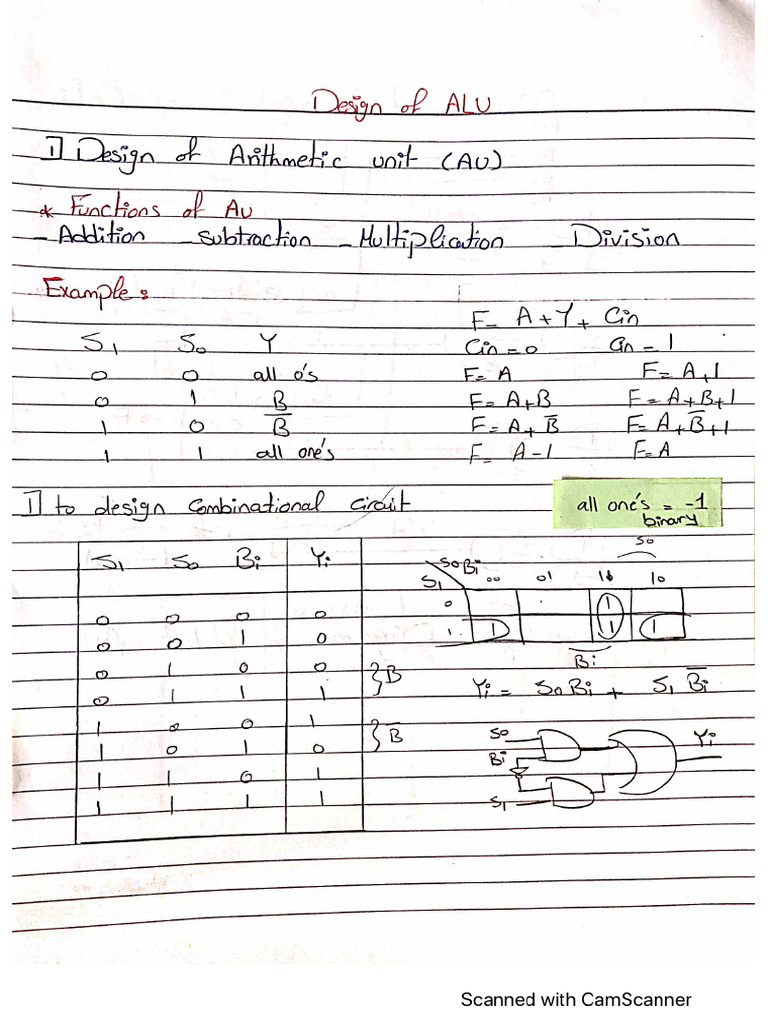 Design of ALU
1] Design of Arithmetic unit (AU)
* Functions of AU
- Addition - subtraction - Multiplication - Division
Example:
F = A + Y + Cin
S1 S0 Y Cin = 0 Cin = 1
0 0 all 0's F = A F = A+1
0 1 B F = A+B F = A+B+1
1 0 B̅ F = A+B̅ F = A+B̅+1
1 1 all one's F = A-1 F = A
1] to design Combinational Circuit
all one's = -1
binary
S1 S0 Bi Yi
0 0 0 0
0 0 1 0
0 1 0 0
0 1 1 1
} B
1 0 0 1
1 0 1 0
} B̅
1 1 0 1
1 1 1 1
S0
S0Bi
S1 00 01 11 10
0 1
1 1 1 1
Bi
Yi = S0 Bi + S1 B̅i
S0
Bi
S1
Yi
Scanned with CamScanner